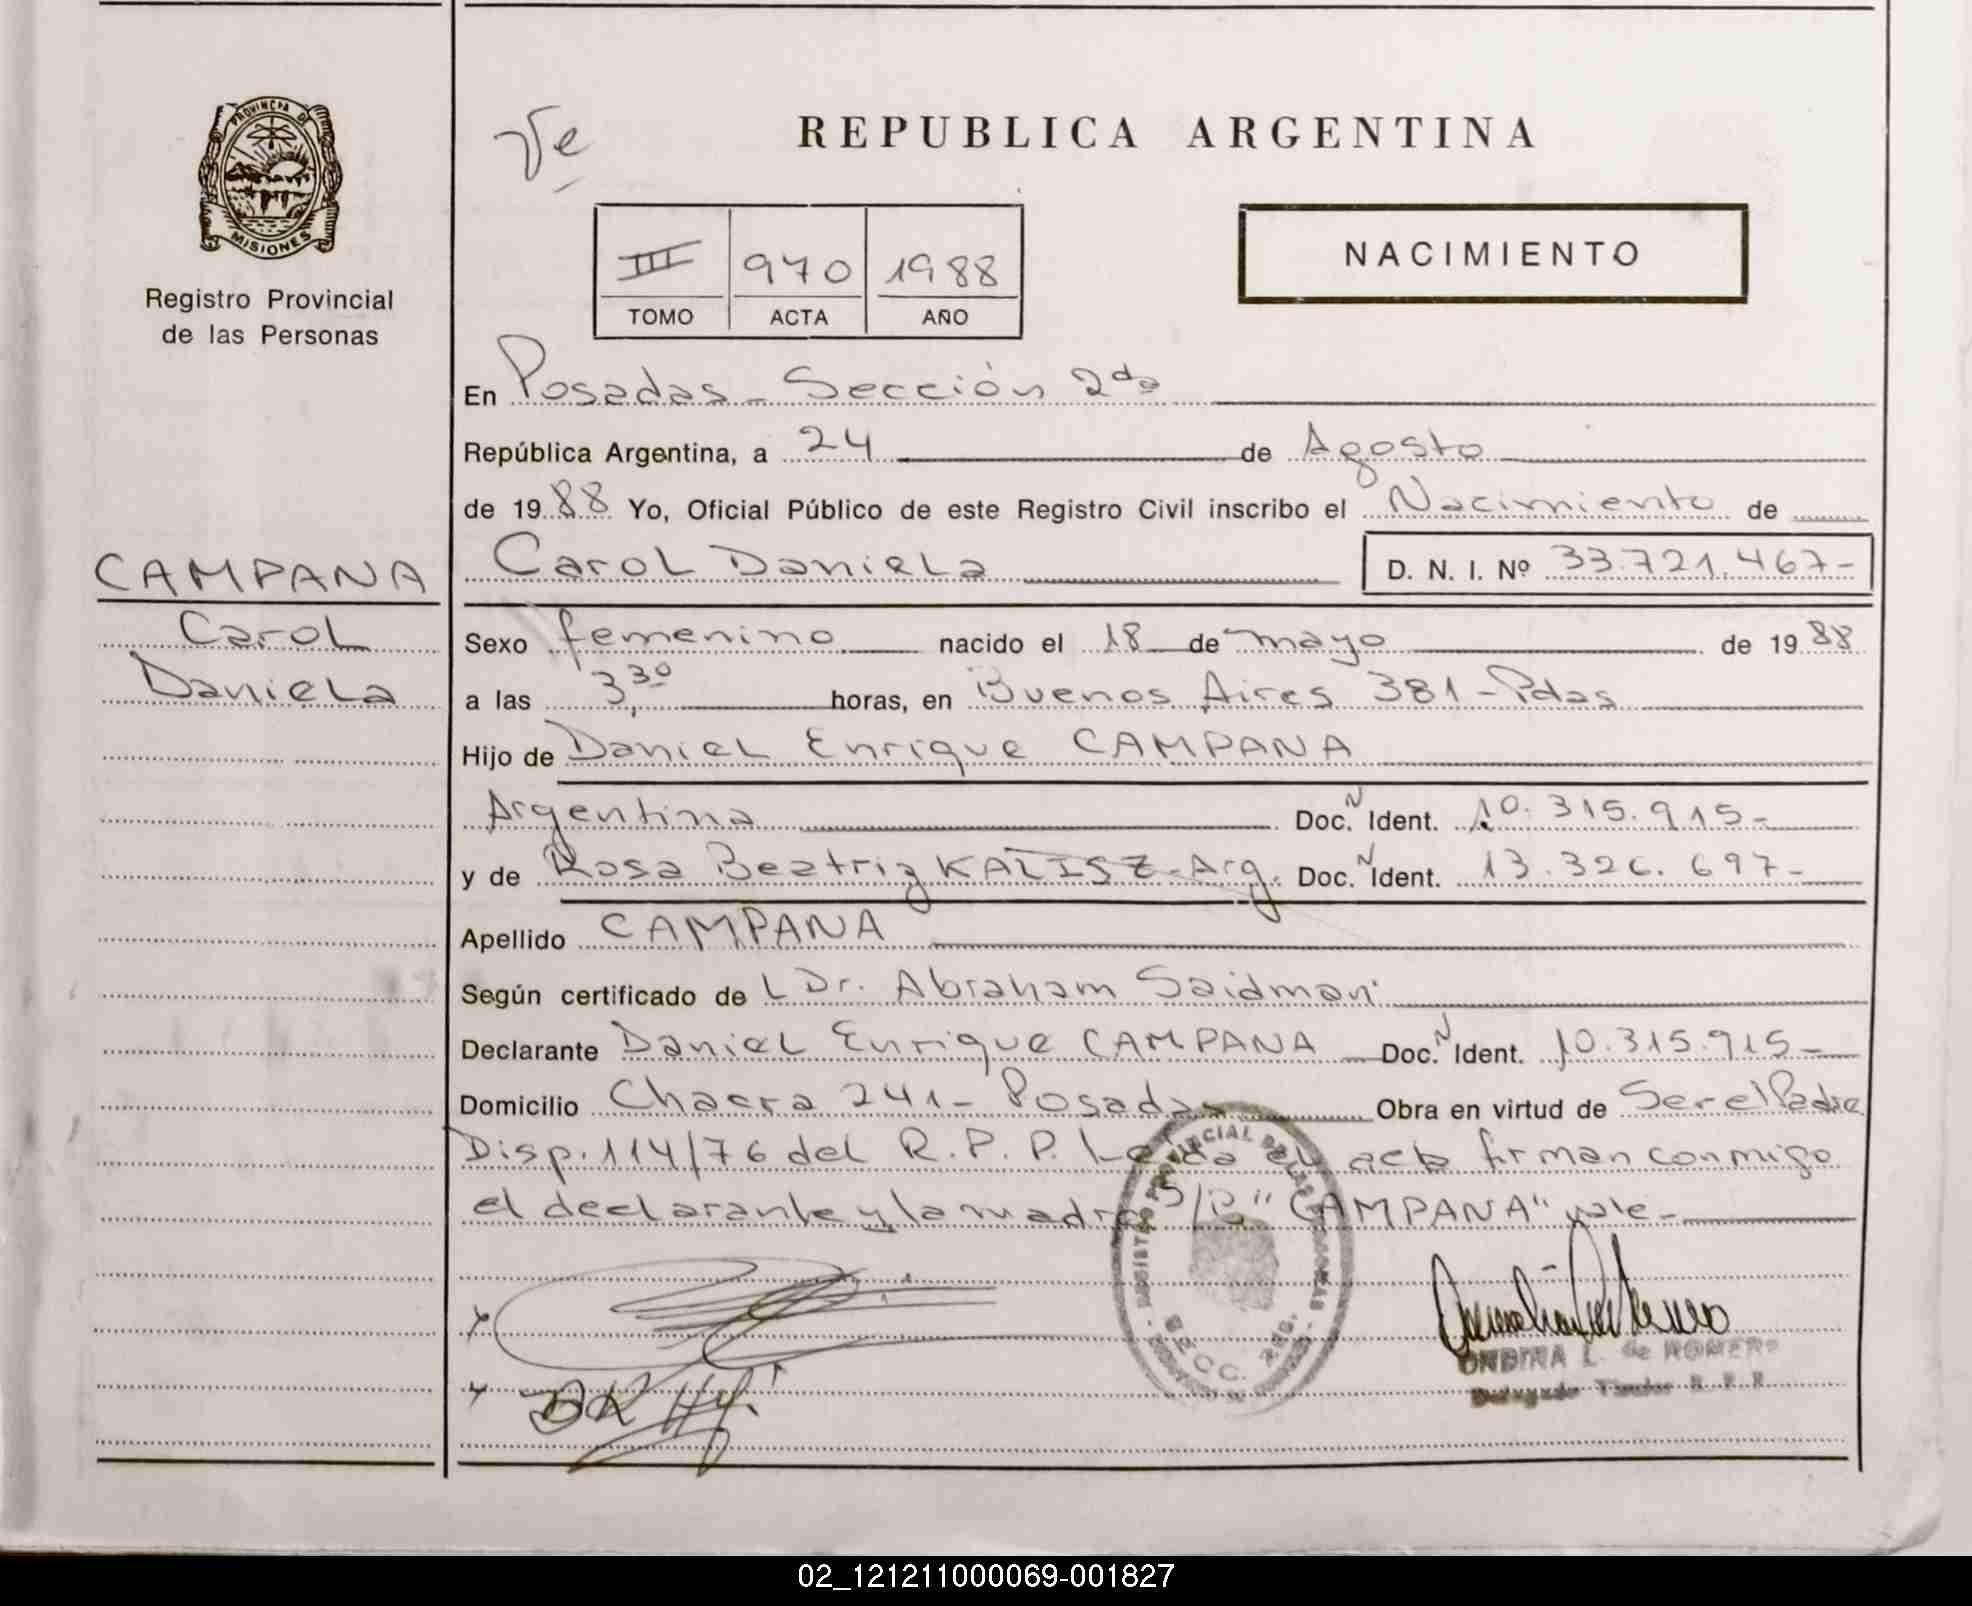 PROVINCIA DE
MISIONES
Registro Provincial
de las Personas
CAMPANA
Carol
Daniela
REPUBLICA ARGENTINA
III 970 1988
TOMO ACTA AÑO
NACIMIENTO
En Posadas - Sección 2da
República Argentina, a 24 de Agosto
de 1988 Yo, Oficial Público de este Registro Civil inscribo el Nacimiento de
Carol Daniela D. N. I. Nº 33.721.467-
Sexo femenino nacido el 18 de mayo de 1988
a las 3,30 horas, en Buenos Aires 381 - Pdas
Hijo de Daniel Enrique CAMPANA
Argentina Doc. N Ident. 10.315.915-
y de Rosa Beatriz KALISZ - Arg. Doc. N Ident. 13.326.697-
Apellido CAMPANA
Según certificado de L Dr. Abraham Saidman
Declarante Daniel Enrique CAMPANA Doc. N Ident. 10.315.915-
Domicilio Chacra 241 - Posadas Obra en virtud de Ser el Padre
Disp. 114/76 del R. P. P. Leída el acta firman conmigo
el declarante y la madre S/B "CAMPANA" vale -
REGISTRO PROVINCIAL DE LAS PERSONAS
SECC. 2da.
ONDINA L. de ROMERO
Delegada Titular R. P. P.
02_121211000069-001827